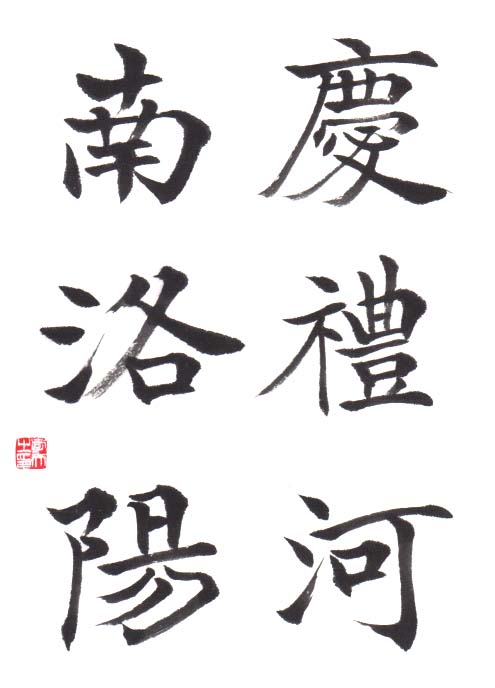 慶禮河
南洛陽